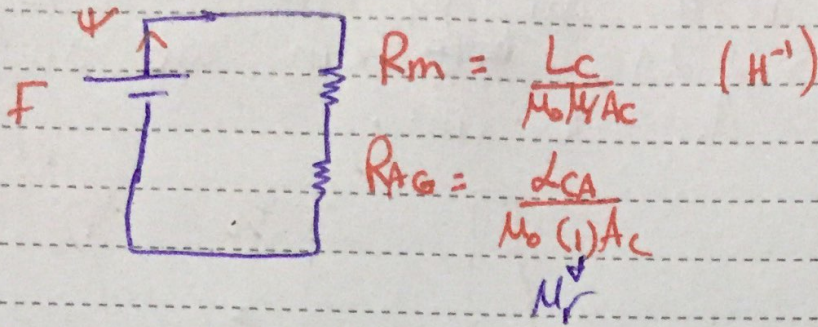 Ψ
F
Rm = Lc / μ₀ μr Ac (H⁻¹)
RAG = LCA / μ₀ (1) Ac
μr